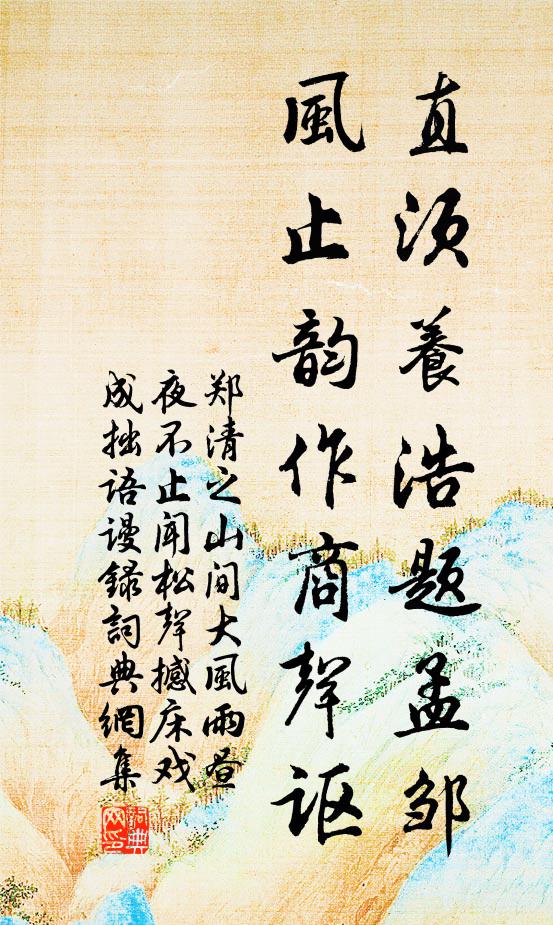 直须養浩题孟邹
風止韵作商聲讴
郑清之山间大风雨昼
夜不止闻松聲撼床戏
成拙语谩録詞典網集
詞典網印